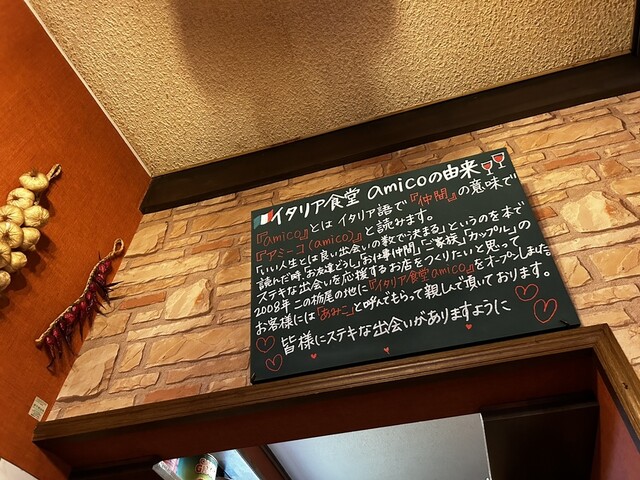 イタリア食堂 amicoの由来
『amico』とは イタリア語で『仲間』の意味で
『アミーコ(amico)』と読みます。
「いい人生とは良い出会いの数で決まる」というのを本で
読んだ時、「お友達どうし」「お仕事仲間」「ご家族」「カップル」の
ステキな出会いを応援するお店をつくりたいと思って
2008年 この栃尾の地に『イタリア食堂amico』をオープンしました。
お客様には「あみこ」と呼んでもらって親しんで頂いております。
皆様にステキな出会いがありますように